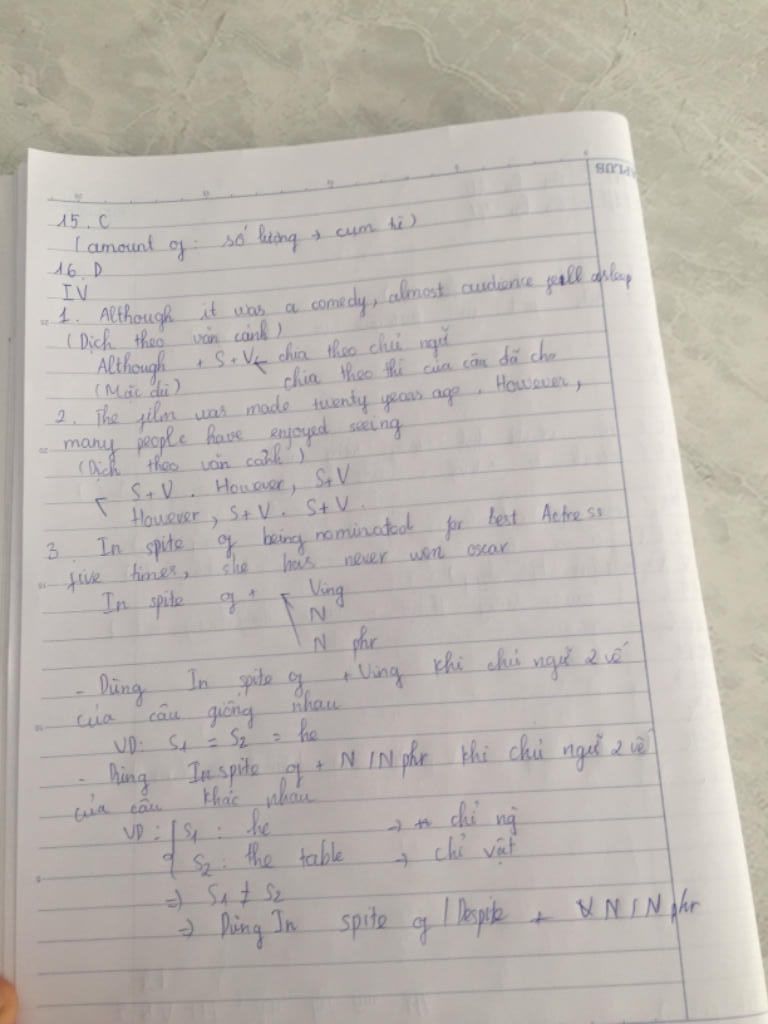 15. C
(amount of: số lượng → cụm từ)
16. D
IV
1. Although it was a comedy, almost audience fell asleep
(Dịch theo văn cảnh)
Although + S+V ← chia theo chủ ngữ
(Mặc dù) chia theo thì của câu đã cho
2. The film was made twenty years ago. However,
many people have enjoyed seeing
(Dịch theo văn cảnh)
S+V. However, S+V
However, S+V. S+V.
3. In spite of being nominated for best Actress
five times, she has never won oscar
In spite of + Ving
N
N phr
- Dùng In spite of + Ving khi chủ ngữ 2 vế
của câu giống nhau
VD: S1 = S2 = he
- Dùng In spite of + N/N phr khi chủ ngữ 2 vế
của câu khác nhau
VD: S1: he → chỉ ng
S2: the table → chỉ vật
=> S1 ≠ S2
=> Dùng In spite of / Despite + N/N phr